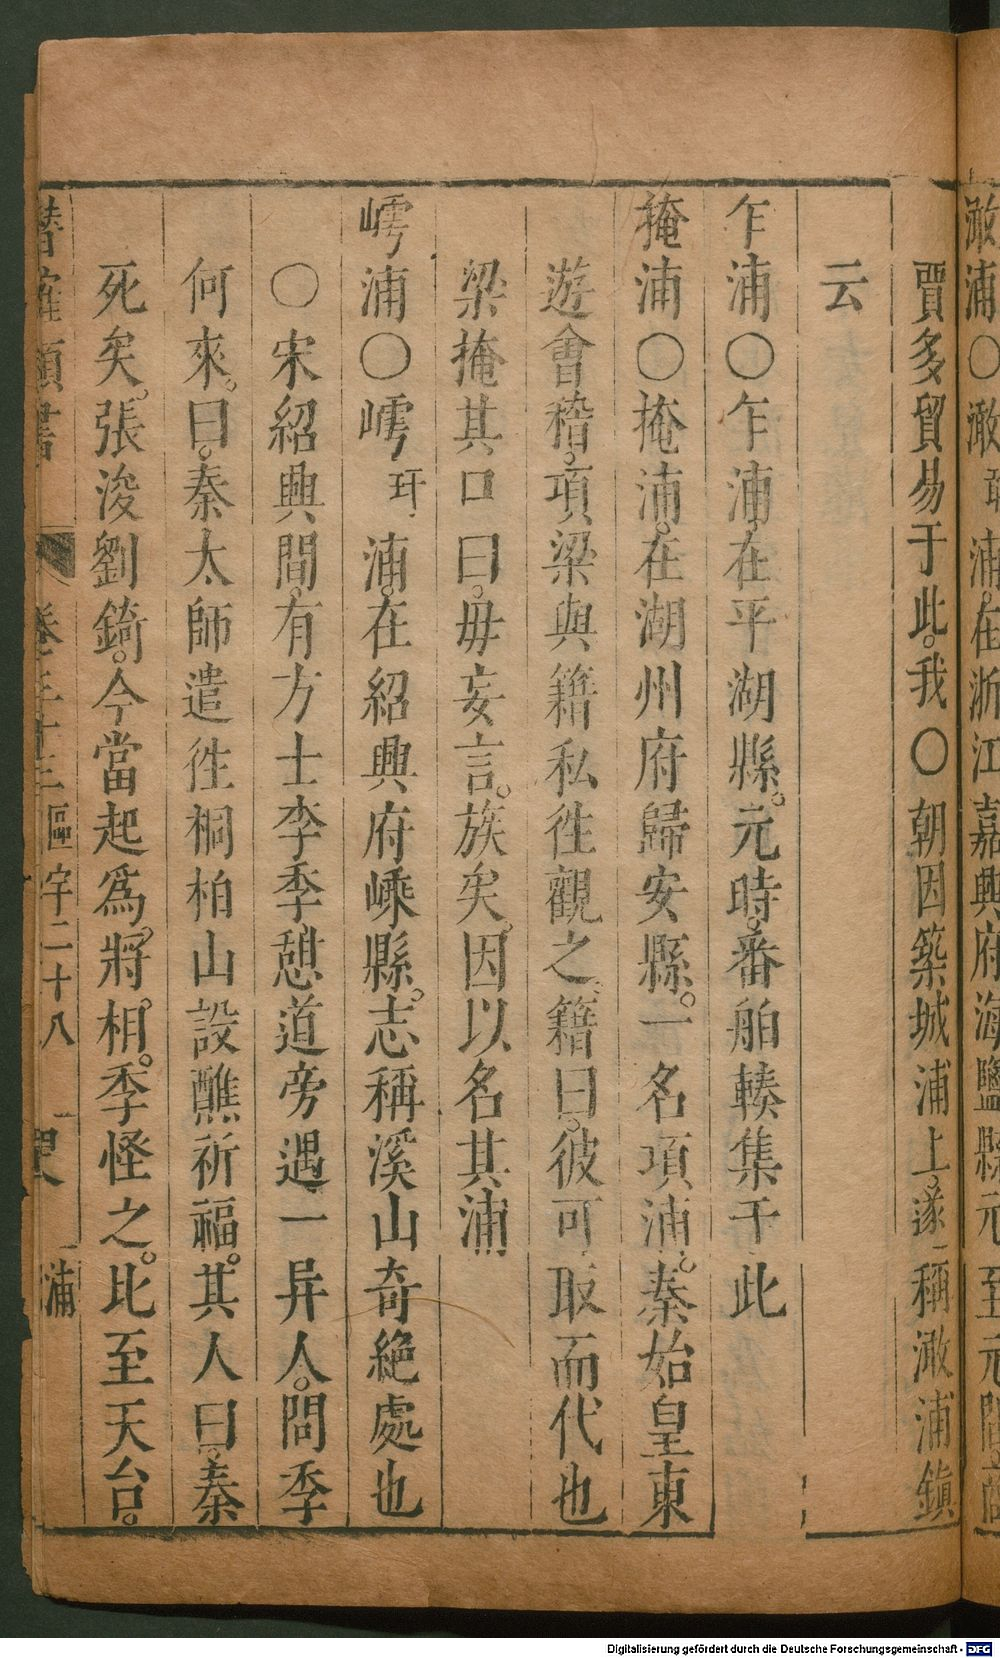 澉浦〇澉浦。在浙江嘉興府海鹽縣元至元間
賈多貿易于此。我〇朝因築城浦上。遂稱澉浦鎮
云
乍浦〇乍浦在平湖縣。元時。番舶輳集于此
掩浦〇掩浦。在湖州府歸安縣。一名項浦。秦始皇東
遊會稽。項梁與籍私徃觀之。籍曰。彼可取而代也
梁掩其口曰。毋妄言。族矣。因以名其浦
嶀浦〇嶀浦。在紹興府嵊縣。志稱溪山奇絶處也
〇宋紹興間。有方士李季。憩道旁遇一异人。問季
何來。曰。秦太師遣徃桐柏山設醮祈福。其人曰。秦
死矣。張浚劉錡。今當起爲。將。相。季怪之。比至天台。
潛確類書 卷三十三 區宇二十八 浦
Digitalisierung gefördert durch die Deutsche Forschungsgemeinschaft - DFG